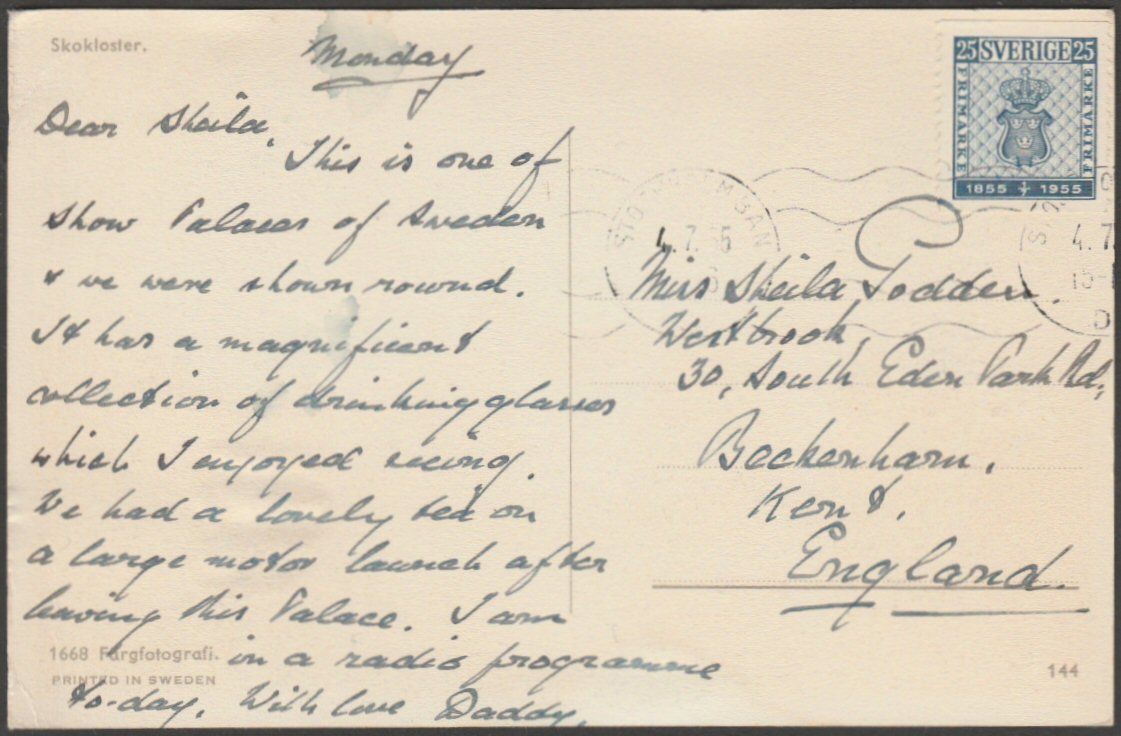 Skokloster.
Monday
Dear Sheila,
This is one of
show Palaces of Sweden
& we were shown round.
It has a magnificent
collection of drinking glasses
which I enjoyed seeing.
We had a lovely tea on
a large motor launch after
leaving this Palace. I am
in a radio programme
to-day. With love Daddy.
1668 Färgfotografi.
PRINTED IN SWEDEN
25 SVERIGE 25
FRIMÄRKE
FRIMÄRKE
1855 1955
4. 7. 5
4. 7.
Miss Sheila Todden.
Westbrook,
30, South Eden Park Rd,
Beckenham,
Kent,
England.
144